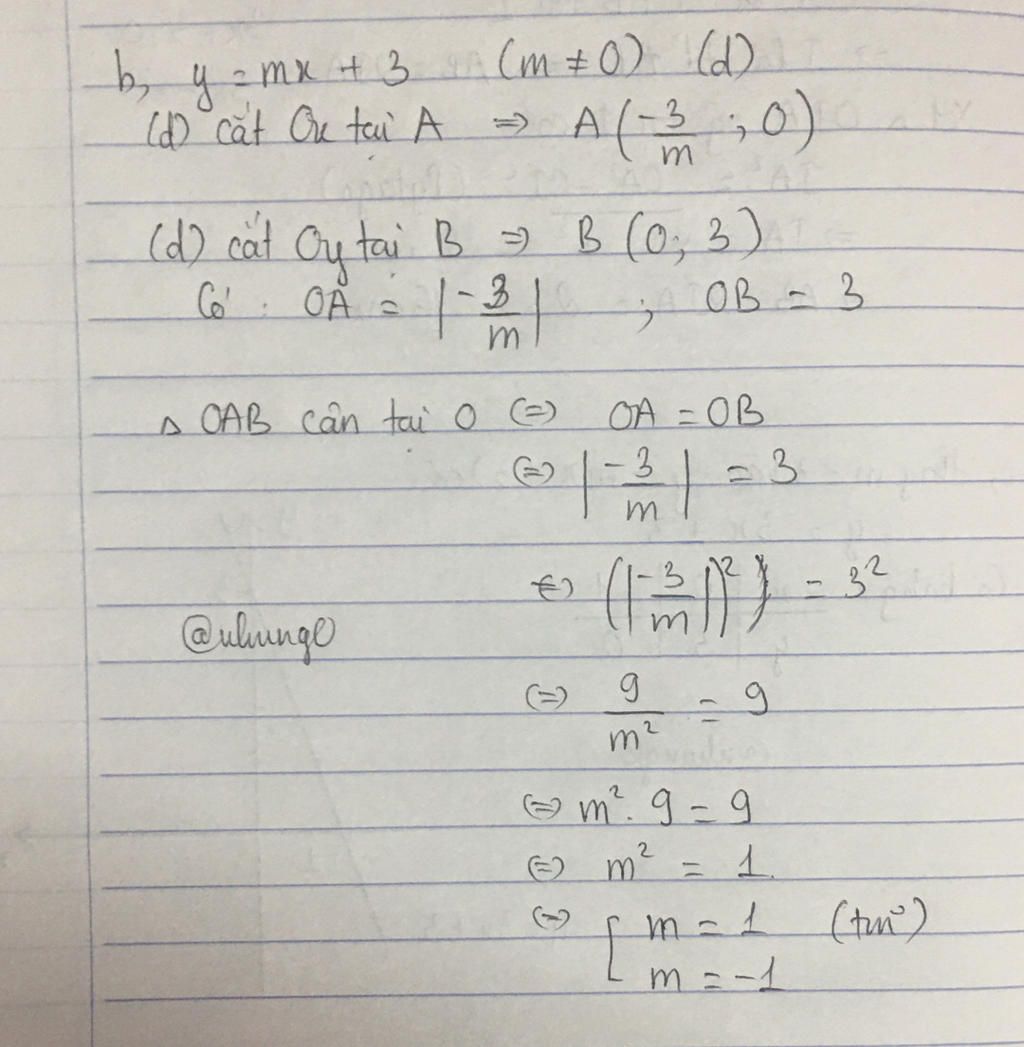 b, y = mx + 3 (m ≠ 0) (d)
(d) cắt Ox tại A ⇒ A(-3/m ; 0)
(d) cắt Oy tại B ⇒ B (0; 3)
Có : OA = |-3/m| ; OB = 3
Δ OAB cân tại O ⇔ OA = OB
⇔ |-3/m| = 3
⇔ (|-3/m|)² = 3²
⇔ 9/m² = 9
⇔ m² . 9 = 9
⇔ m² = 1
⇔ [ m = 1 (tm)
m = -1